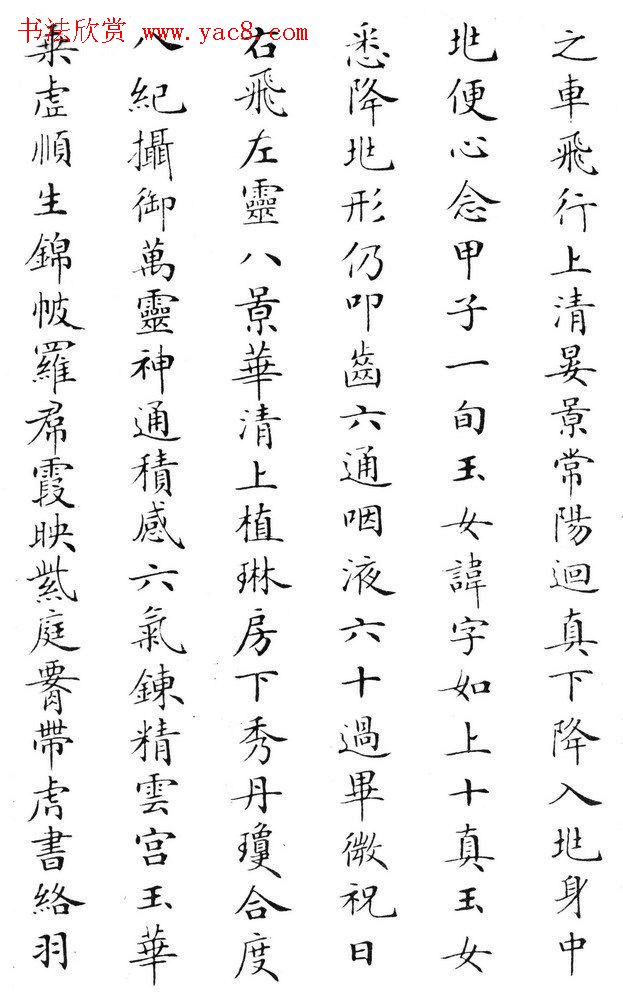 书法欣赏 www.yac8.com
之車飛行上清晏景常陽迴真下降入兆身中
兆便心念甲子一旬玉女諱字如上十真玉女
悉降兆形仍叩齒六通咽液六十過畢微祝曰
右飛左靈八景華清上植琳房下秀丹瓊合度
八紀攝御萬靈神通積感六氣鍊精雲宮玉華
乗虛順生錦帔羅帬霞映紫庭腰帶虎書絡羽